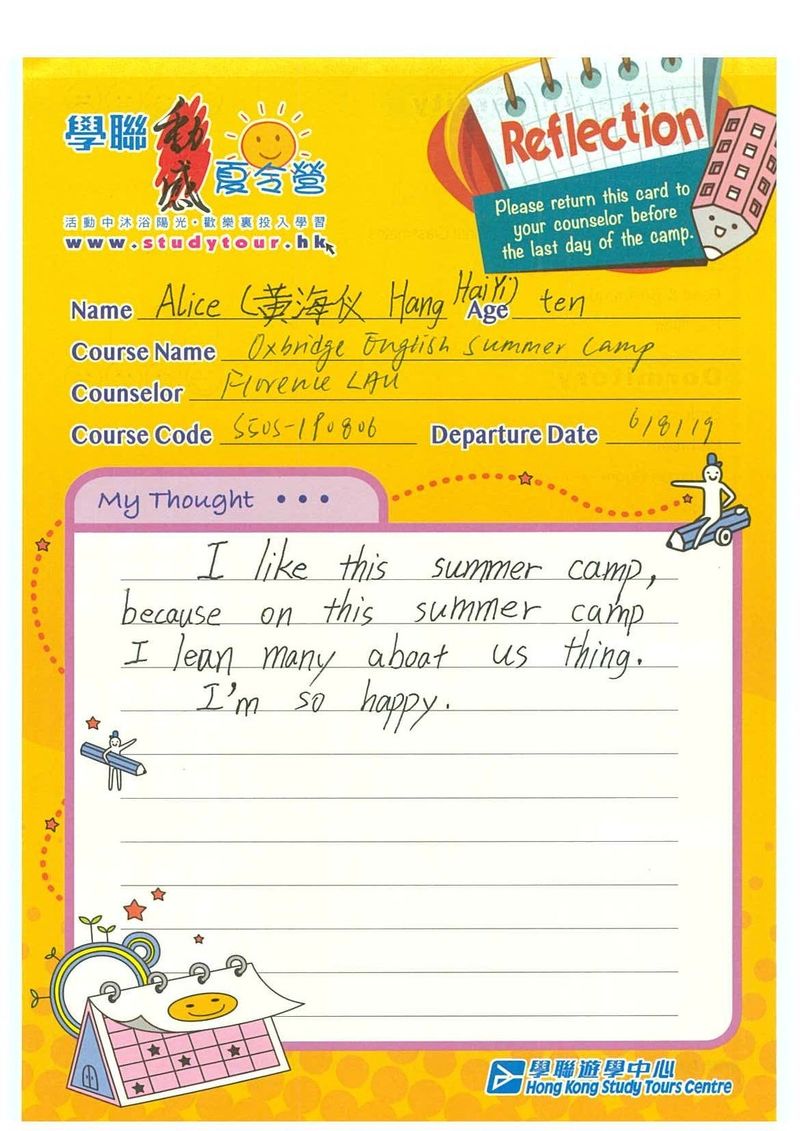 學聯 動感 夏令營
活動中沐浴陽光・歡樂裏投入學習
www.studytour.hk
Reflection
Please return this card to
your counselor before
the last day of the camp.
Name Alice (黃海仪 Hang HaiYi) Age ten
Course Name Oxbridge English Summer Camp
Counselor Florence LAU
Course Code SS05-190806 Departure Date 6/8/19
My Thought • • •
I like this summer camp,
because on this summer camp
I lean many aboat us thing.
I'm so happy.
學聯遊學中心
Hong Kong Study Tours Centre